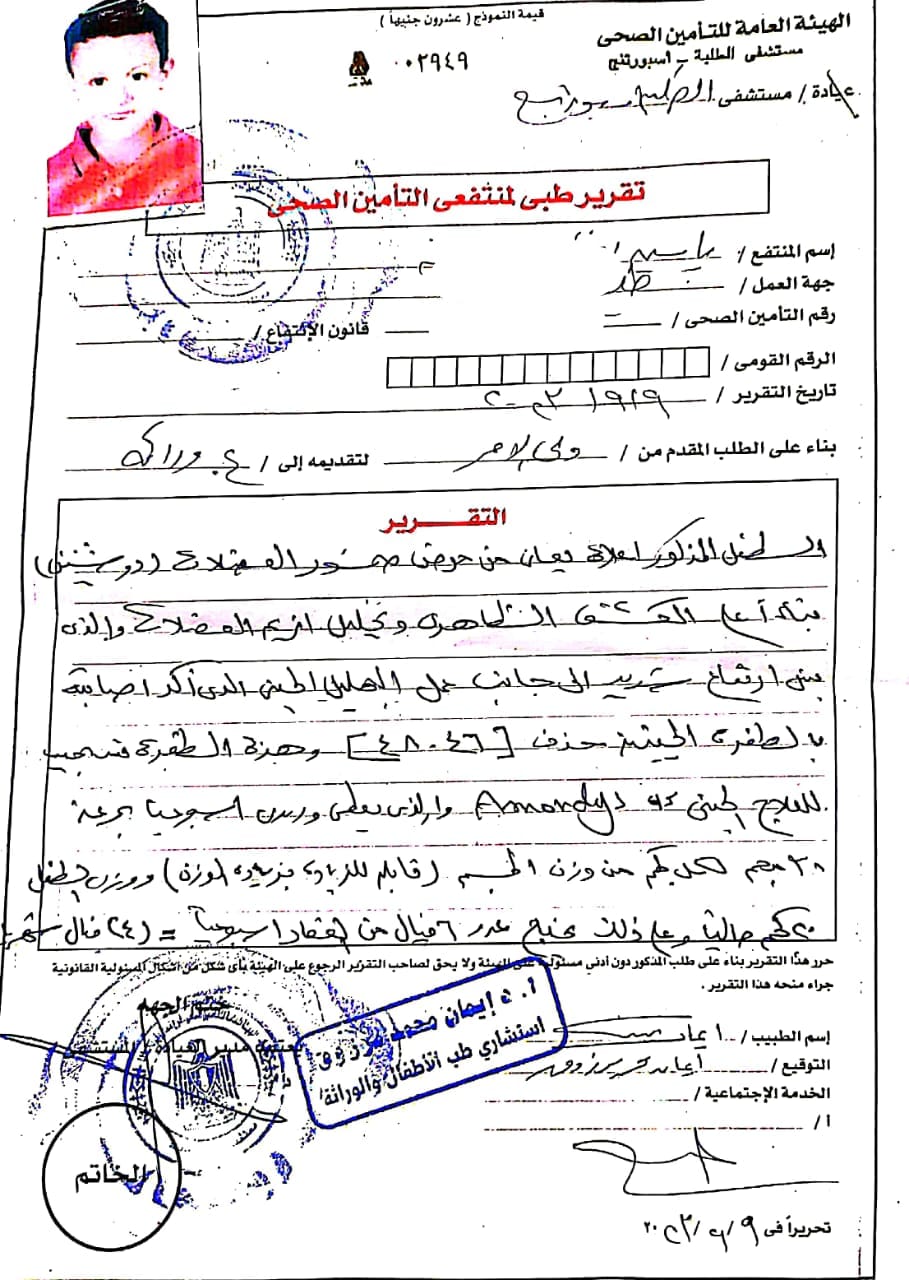 قيمة النموذج ( عشرون جنيهاً )
الهيئة العامة للتأمين الصحى
مستشفى الطلبة - أسبورتنج
٠٠٢٩٤٩
عيادة / مستشفى الطلبة سبورتنج
تقرير طبى لمنتفعى التأمين الصحى
إسم المنتفع / ياسين
جهة العمل /
رقم التأمين الصحى /
قانون الإنتفاع /
الرقم القومى /
تاريخ التقرير /
بناء على الطلب المقدم من / ولى الامر لتقديمه إلى /
التقـــرير
الطفل المذكور اعلاه يعانى من مرض ضمور العضلات (دوشين)
بناءً على الكشف الظاهرى وتحليل انزيم العضلات والذى
بين ارتفاع شديد الى جانب عمل التحليل الجينى الذى أكد اصابته
بالطفرة الجينية حذف [٤٦-٤٨] وهذه الطفرة تستجيب
للعلاج الجينى Amondys 45 والذى يعطى وريدى اسبوعيا بجرعة
٣٠ مجم لكل كجم من وزن الجسم (قابلة للزيادة بزيادة الوزن) ووزن الطفل
٢٠ كجم حالياً وعلى ذلك يحتاج عدد ٦ فيال من العقار اسبوعياً = (٢٤) فيال شهرياً
حرر هذا التقرير بناء على طلب المذكور دون أدنى مسئولية على الهيئة ولا يحق لصاحب التقرير الرجوع على الهيئة بأى شكل من أشكال المسئولية القانونية
جراء منحه هذا التقرير .
ختم الجهة
يعتمد مدير العيادة / المستشفى
أ. د إيمان محمد
استشاري طب الأطفال والوراثة
إسم الطبيب / ايمان
التوقيع / ايمان
الخدمة الإجتماعية /
أ /
الخاتم
تحريراً فى ٩ / ٢٠٢٣